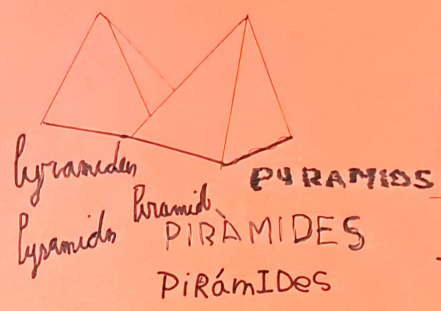 Pyramiden
PYRAMIDS
Piramid
Pyramids
PIRÀMIDES
PiRámIDes